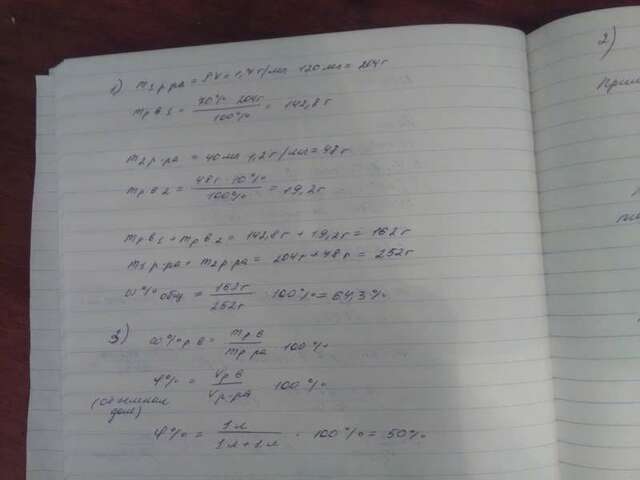 1) m₁ р-ра = ρV = 1,7 г/мл 120 мл = 204 г
m р.в 1 = 70% · 204 г / 100% = 142,8 г
m₂ р-ра = 40 мл 1,2 г/мл = 48 г
m р.в 2 = 48 г · 40% / 100% = 19,2 г
m р.в 1 + m р.в 2 = 142,8 г + 19,2 г = 162 г
m₁ р-ра + m₂ р-ра = 204 г + 48 г = 252 г
ω% общ = 162 г / 252 г · 100% = 64,3%
3) ω% р.в = m р.в / m р-ра 100%
φ% = V р.в / V р-ра 100%
(объемная
доля)
φ% = 1 л / 1 л + 1 л · 100% = 50%
2)